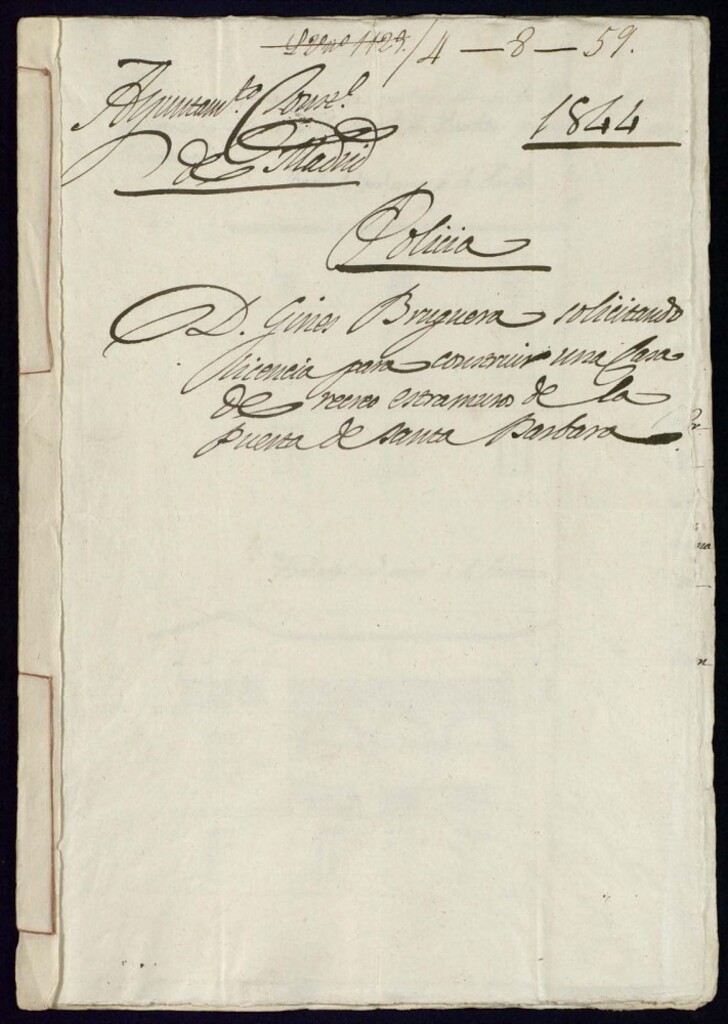 4-8-59.
Ayuntam.to Const.l
1844
de Madrid
Policia
D. Gines Bruguera solicitando
licencia para construir una Casa
de recreo estramuros de la
puerta de Santa Barbara